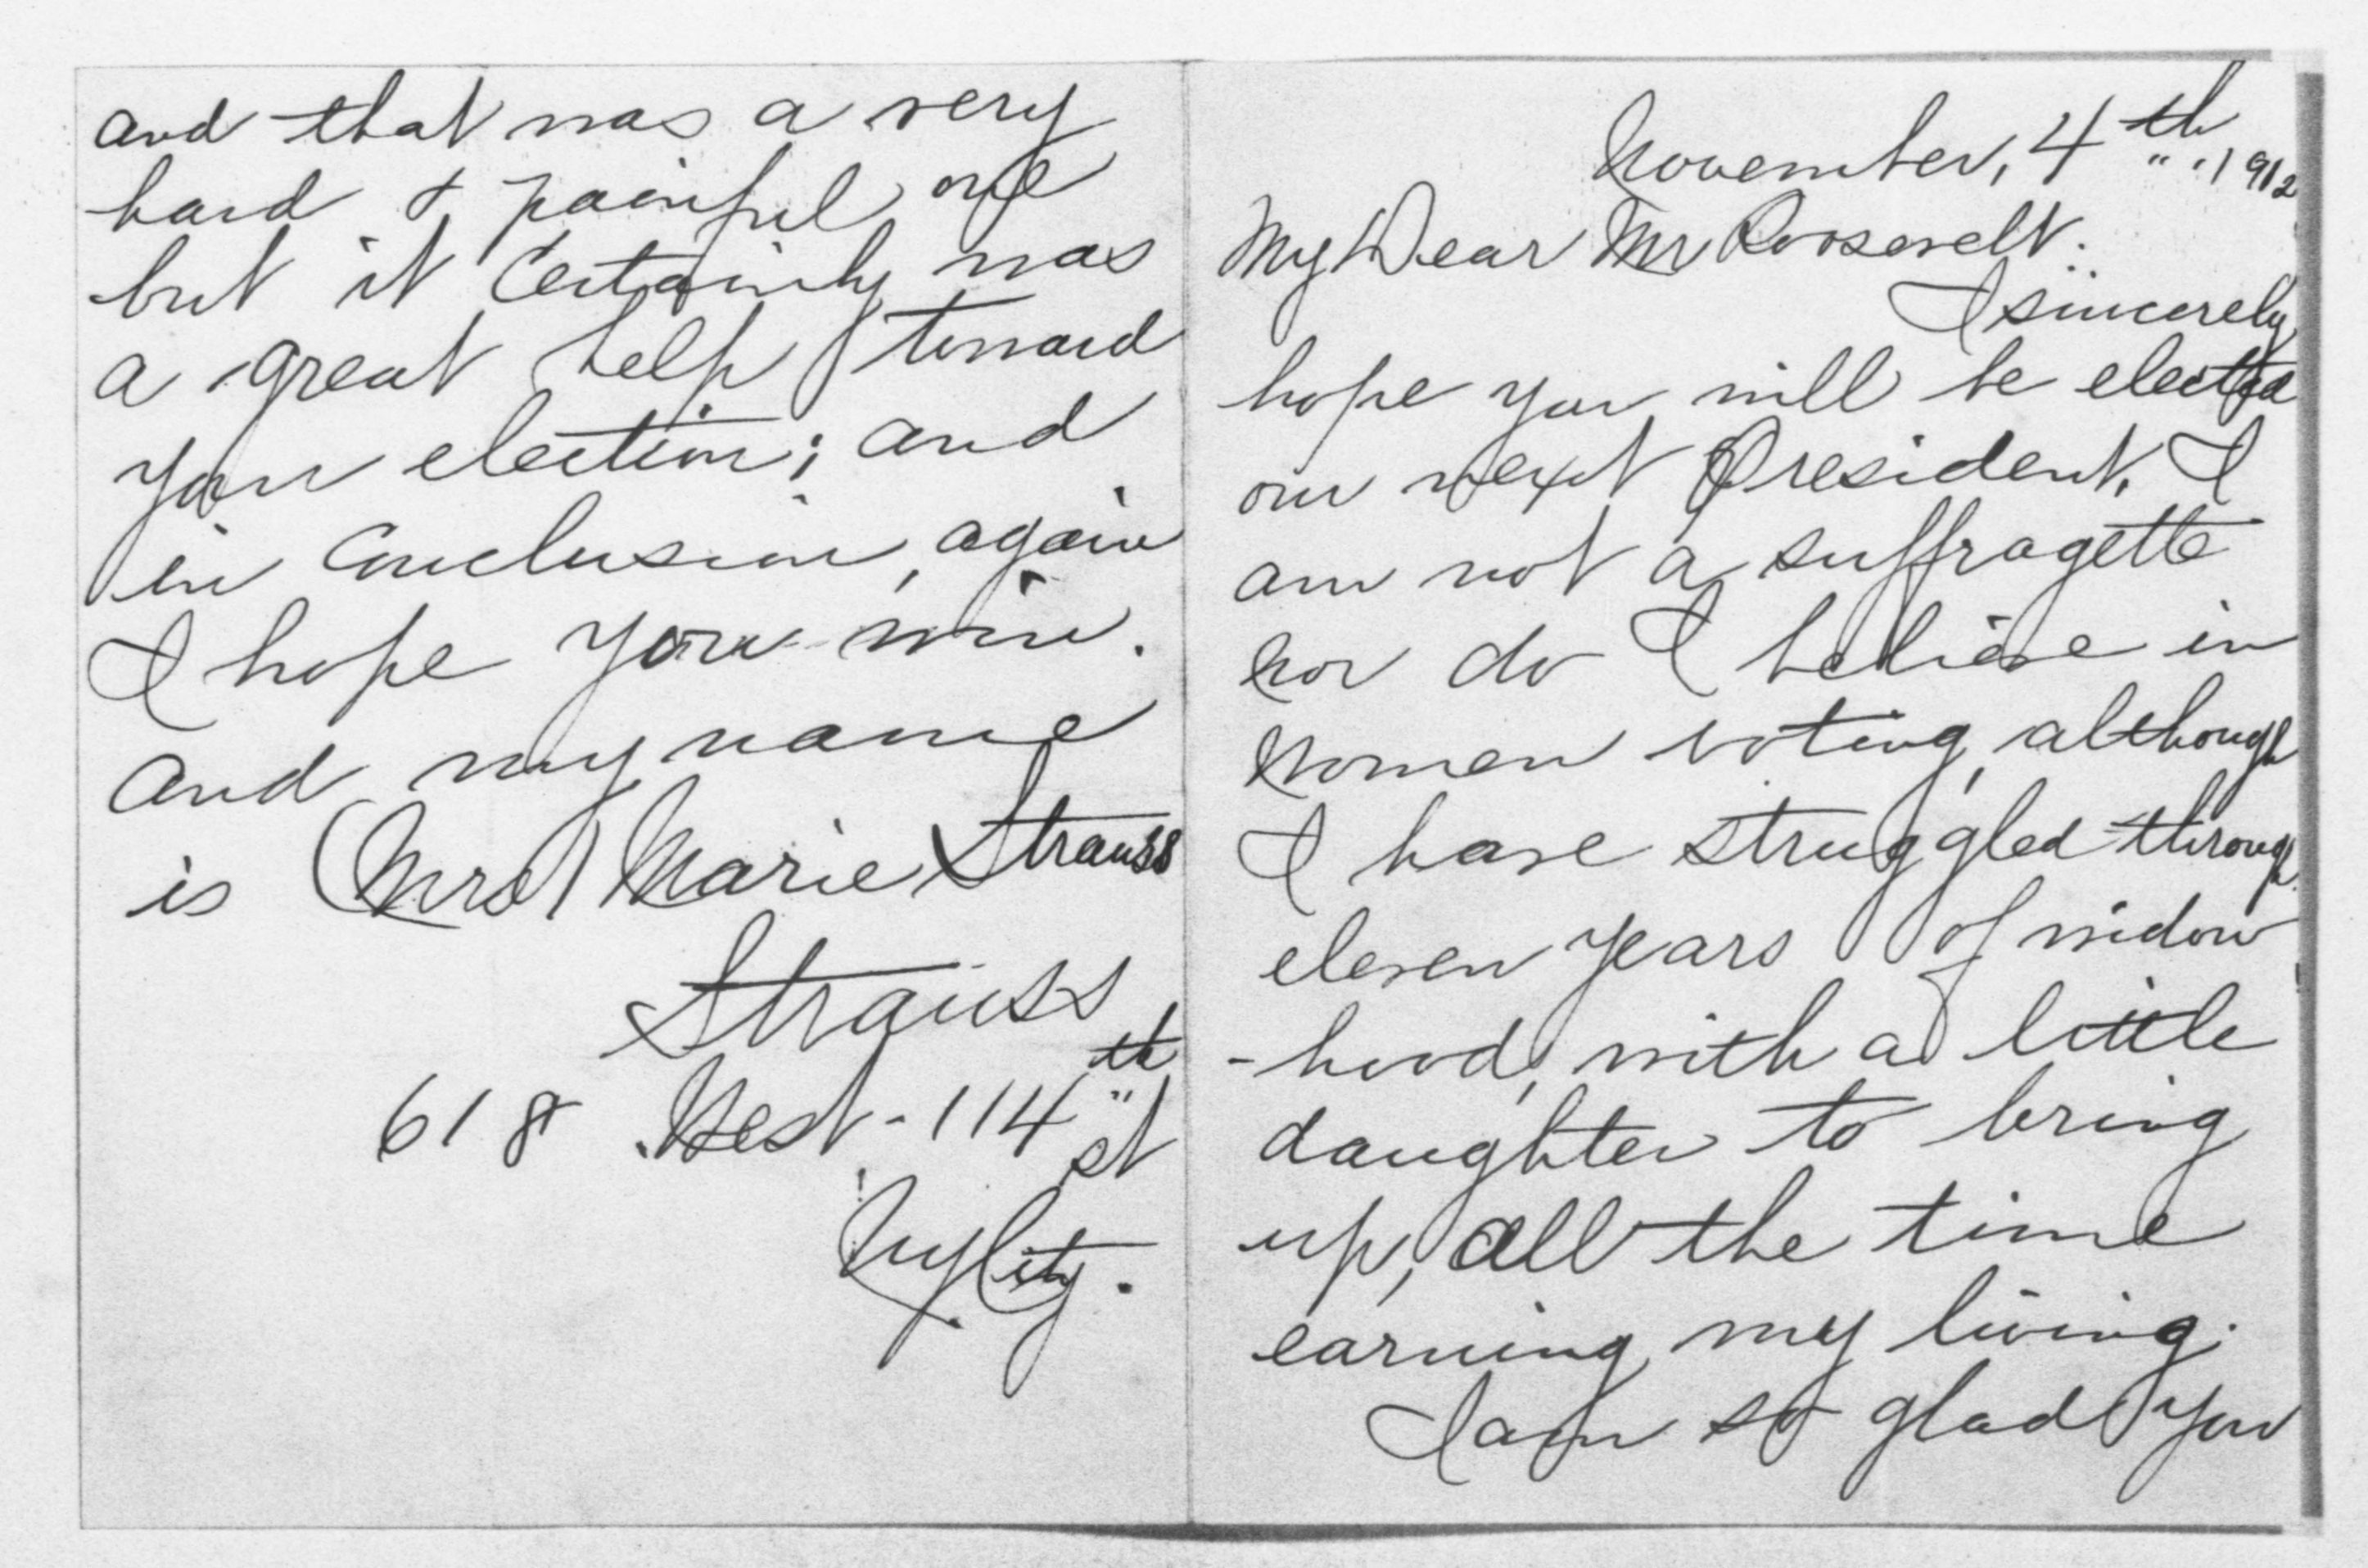 and that was a very
hard & painful one
but it certainly was
a great help toward
your election; and
in conclusion, again
I hope you win.
and my name
is (Mrs) Marie Strauss
Strauss
618 West - 114th st
NyCity.
November, 4th 1912
My Dear Mr Roosevelt.
I sincerely
hope you will be elected
our next President. I
am not a suffragette
nor do I believe in
women voting, although
I have struggled through
eleven years of widow
-hood, with a little
daughter to bring
up, all the time
earning my living.
I am so glad you